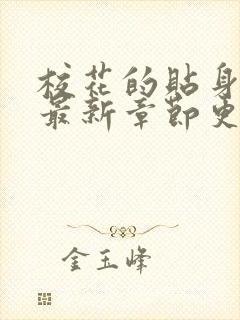 校花的贴身
最新章节更
金玉峰